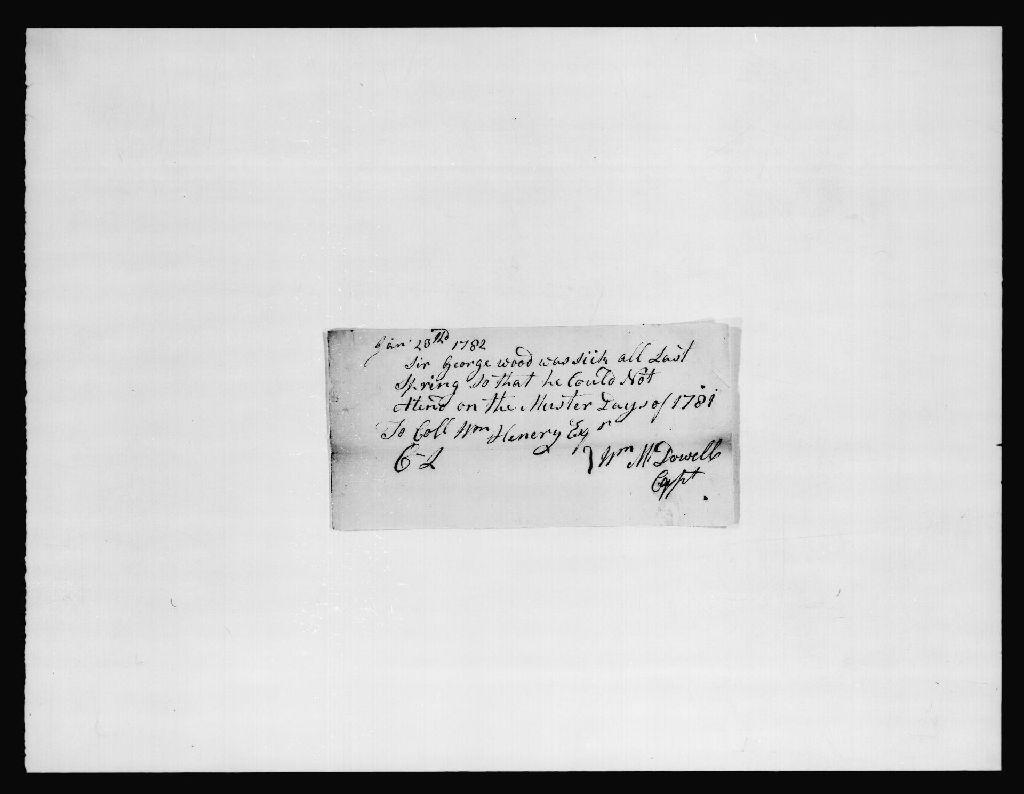 Jan 28th 1782
Sir George wood was sick all Last
Spring So that he Could Not
Atend on the Muster Days of 1781
To Coll Wm Henery Esqr
Wm McDowell
Capt